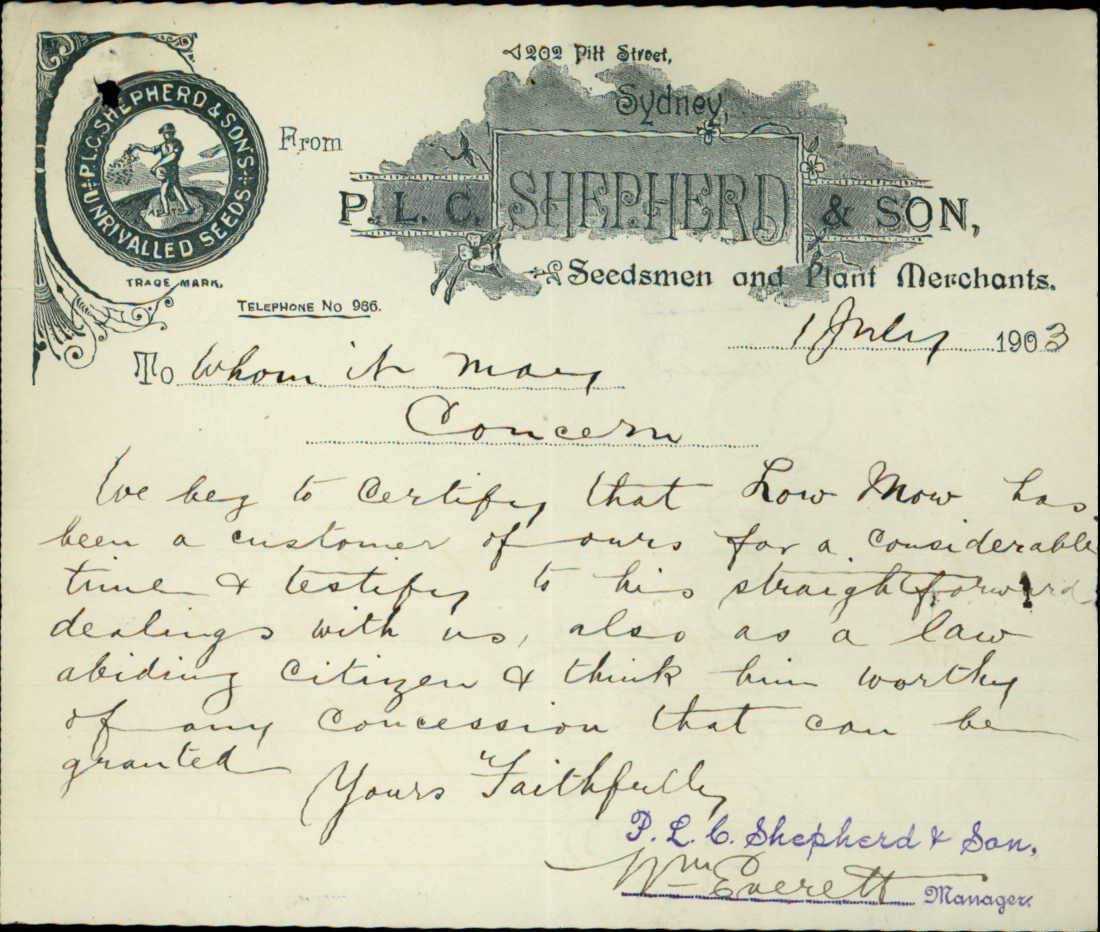 202 Pitt Street,
Sydney,
P.L.C. SHEPHERD & SON'S
UNRIVALLED SEEDS
TRADE MARK.
From
P. L. C. SHEPHERD & SON,
Seedsmen and Plant Merchants.
TELEPHONE NO 986.
1 July 1903
To Whom it May
Concern
We beg to certify that Low Mow has
been a customer of ours for a considerable
time & testify to his straightforward
dealings with us, also as a law
abiding citizen & think him worthy
of any concession that can be
granted
Yours Faithfully
P. L. C. Shepherd & Son.
Wm Everett Manager.